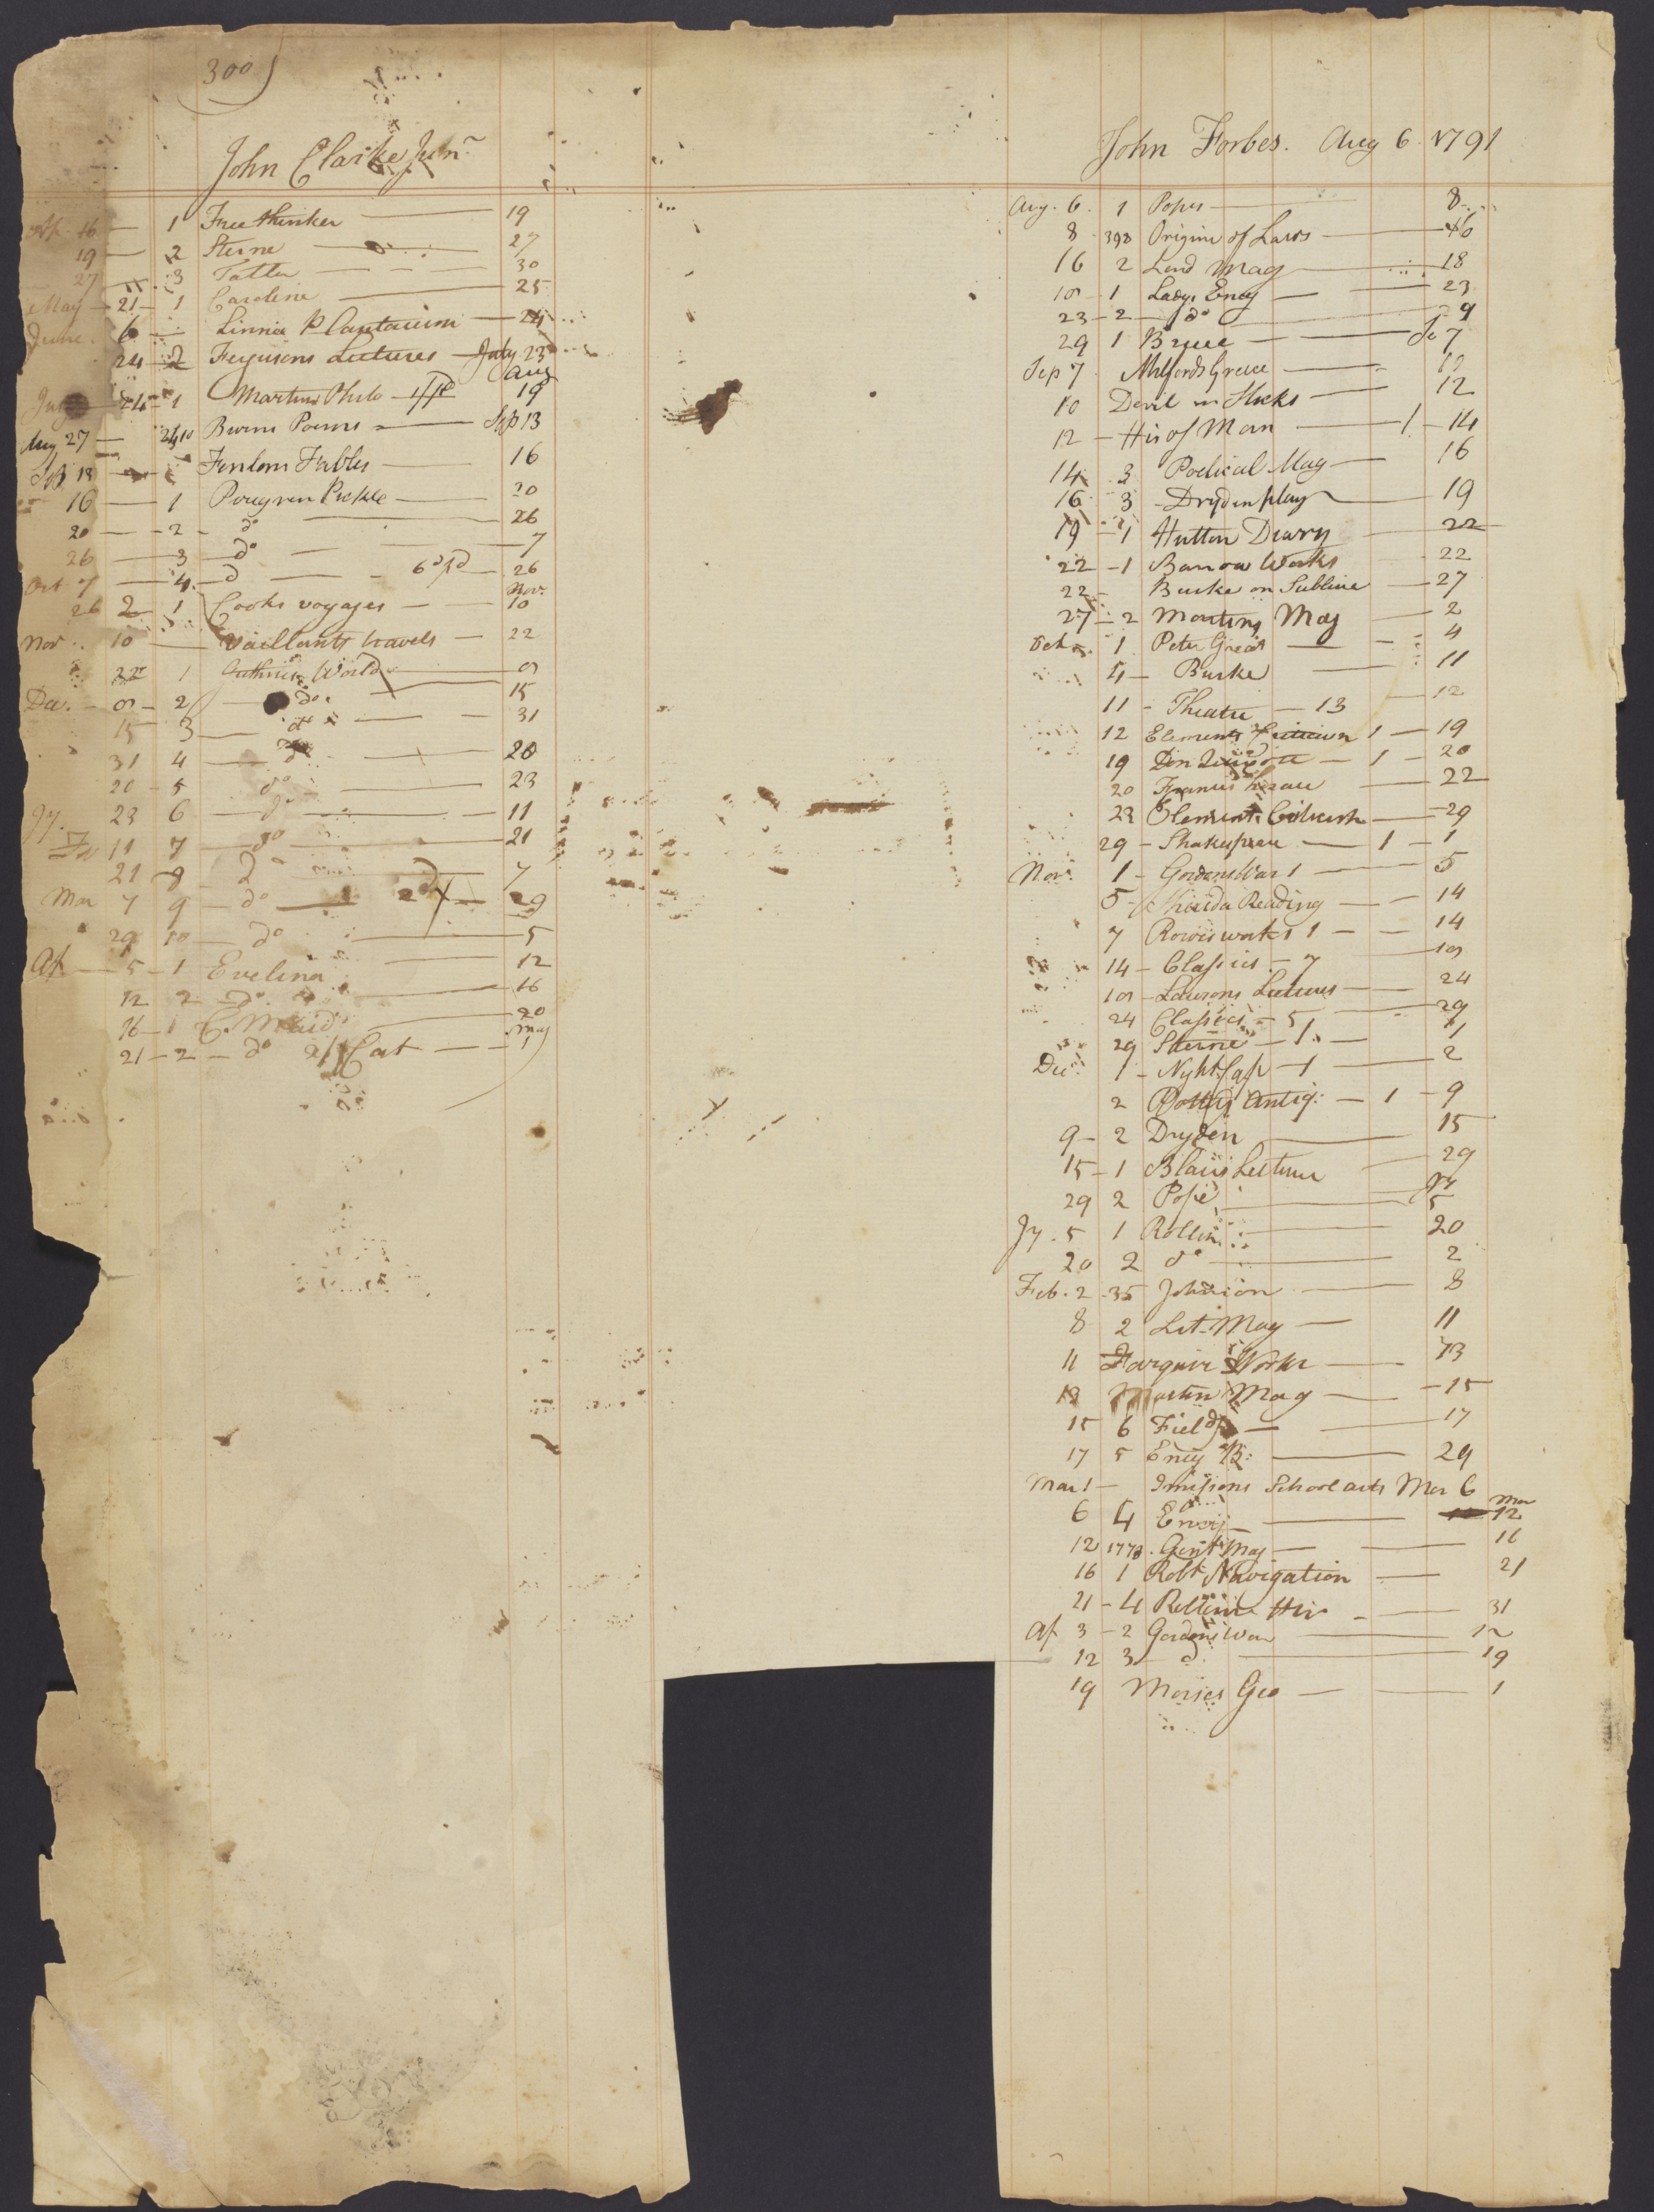 300
John Clarke Junr.
Ap. 16 — 1 Free thinker — 19
19 — 2 Sterne — 27
27 — 3 Tatler — 30
May — 21 — 1 Caroline — 25
June 6 — Linnea Plantarum — 24
24 — 2 Fergusons Lectures — July 23
24 — 1 Martins Philo — Aug 19
Aug 27 — Burns Poems — Sep 13
Sep 13 — Fables — 16
16 — 1 Peregren Pickle — 20
20 — 2 — do — 26
26 — 3 — do — 7
Oct 7 — 4 — do — 6d pd — 26
26 2 1 Cooks voyages — Nov. 10
Nov. 10 — Vaillants travels — 22
22 1 Guthries World
Dec. 2 — do — 15
15 3 — do — 31
31 4 — do — 20
20 — 5 do — 23
Jy. 23 6 — do — 11
Fe 11 7 — do — 21
21 — 8 do — 7
Mar 7 9 — do — 29
29 10 — do — 5
Ap — 5 — 1 Evelina — 12
12 2 — do — 16
16 — 1 C. Maid — 20
21 — 2 — do Cat — May 1
John Forbes. Aug 6. 1791
Aug. 6. 1 Popes — 8
8 398 Origine of Laws — 16
16 2 Lond Mag — 18
18 — 1 Ladys Ency — 23
23 — 2 — do — 29
29 1 Bruce — Se 7
Sep 7 Mitfords Greece — 10
10 Devil on Sticks — 12
12 — His of Man — 1 — 14
14 3 Poetical Mag — 16
16 3 — Dryden plays — 19
19 — 1 Hutton Diary — 22
22 — 1 Barrow Works — 22
22 — Burke on Sublime — 27
27 — 2 Martins Mag — 2
Oct 2. 1 Peter Great — 4
4 — Burke — 11
11 — Theatre — 13 — 12
12 Elements Criticism 1 — 19
19 Don Quixote — 1 — 20
20 Francis Horace — 22
22 Elements Criticism — 29
29 — Shakespeare — 1 — 1
Nov. 1 — Gordons War 1 — 5
5 — Reading — 14
7 Rowes works 1 — 14
14 — Classics — 7 — 18
18 — Lawsons Lectures — 24
24 Classics — 5 — 29
29 Sterne — 1 — 1
Dec. 1 — Night Cap — 1 — 2
2 Potters Antiq: — 1 — 9
9 — 2 Dryden — 15
15 — 1 Blairs Lecture — 29
29 2 Pope — Jy 5
Jy. 5 1 Rollin — 20
20 2 do — 2
Feb. 2 35 Johnson — 8
8 2 Lit. Mag — 11
11 Farquire Works — 13
13 Martin Mag — 15
15 6 Field — 17
17 5 Ency B: — 29
Mar 1 — Imisons School arts Mar 6
6 4 Ency — Mar 12
12 1778. Gent Mag — 16
16 1 Robt Navigation — 21
21 — 4 Rollins His — 31
Ap 3 — 2 Gordons War — 12
12 3 — do — 19
19 Morses Geo — 1